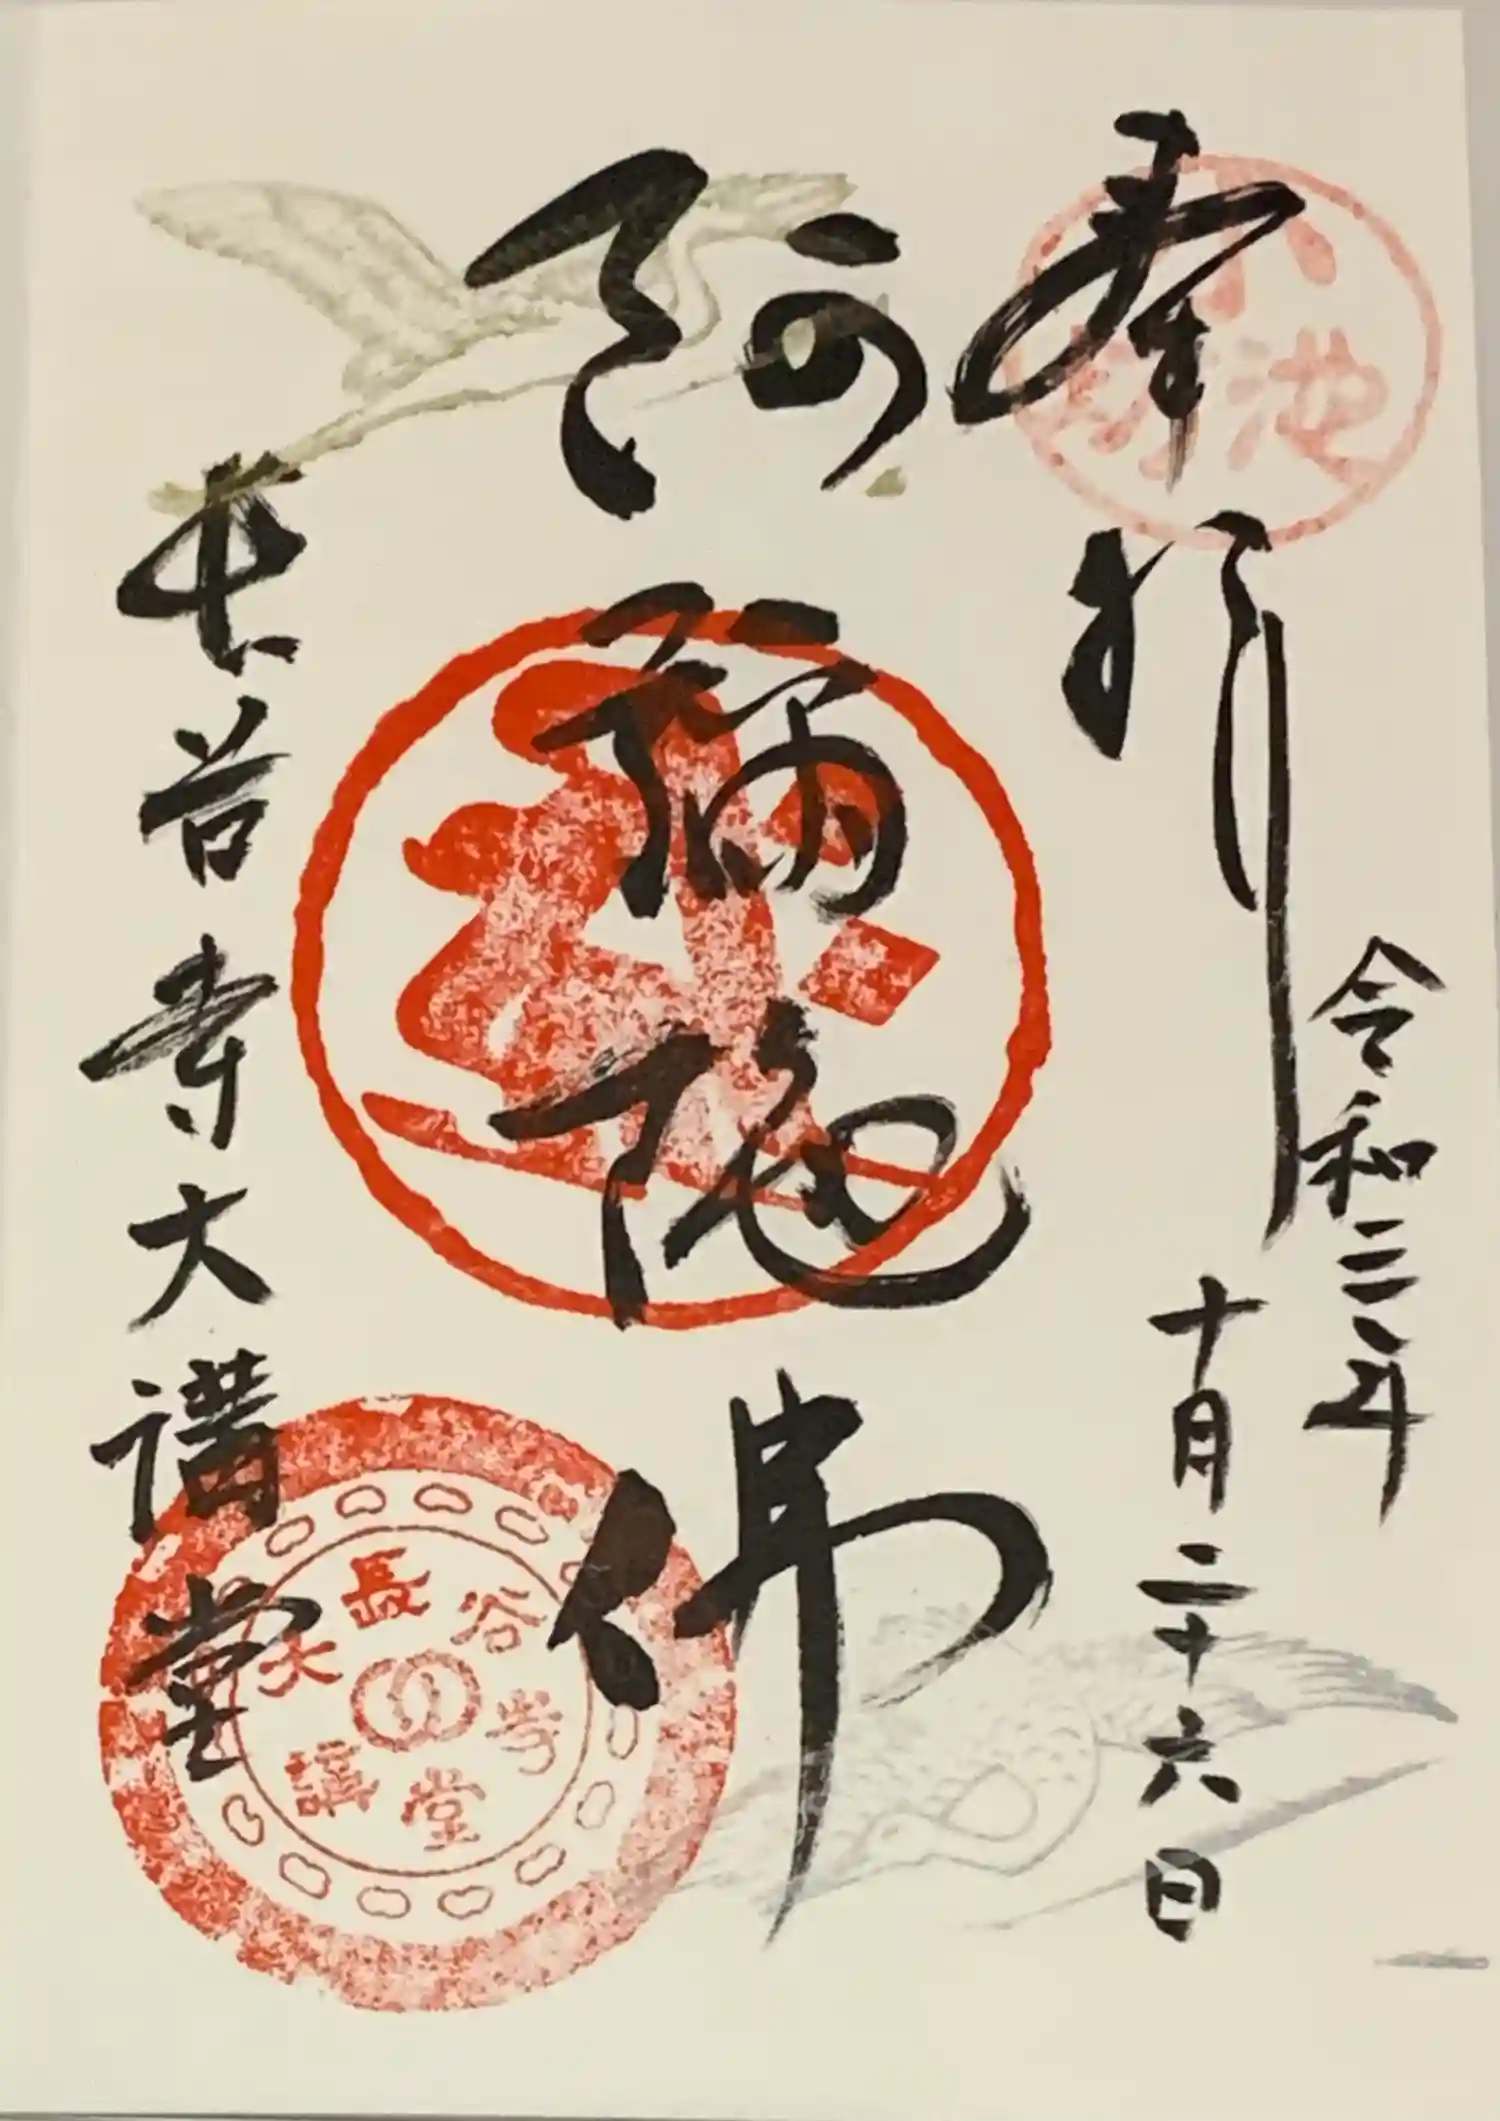 奉拝
令和三年
十月二十六日
阿彌陀佛
長谷寺大講堂
長谷寺
大講堂